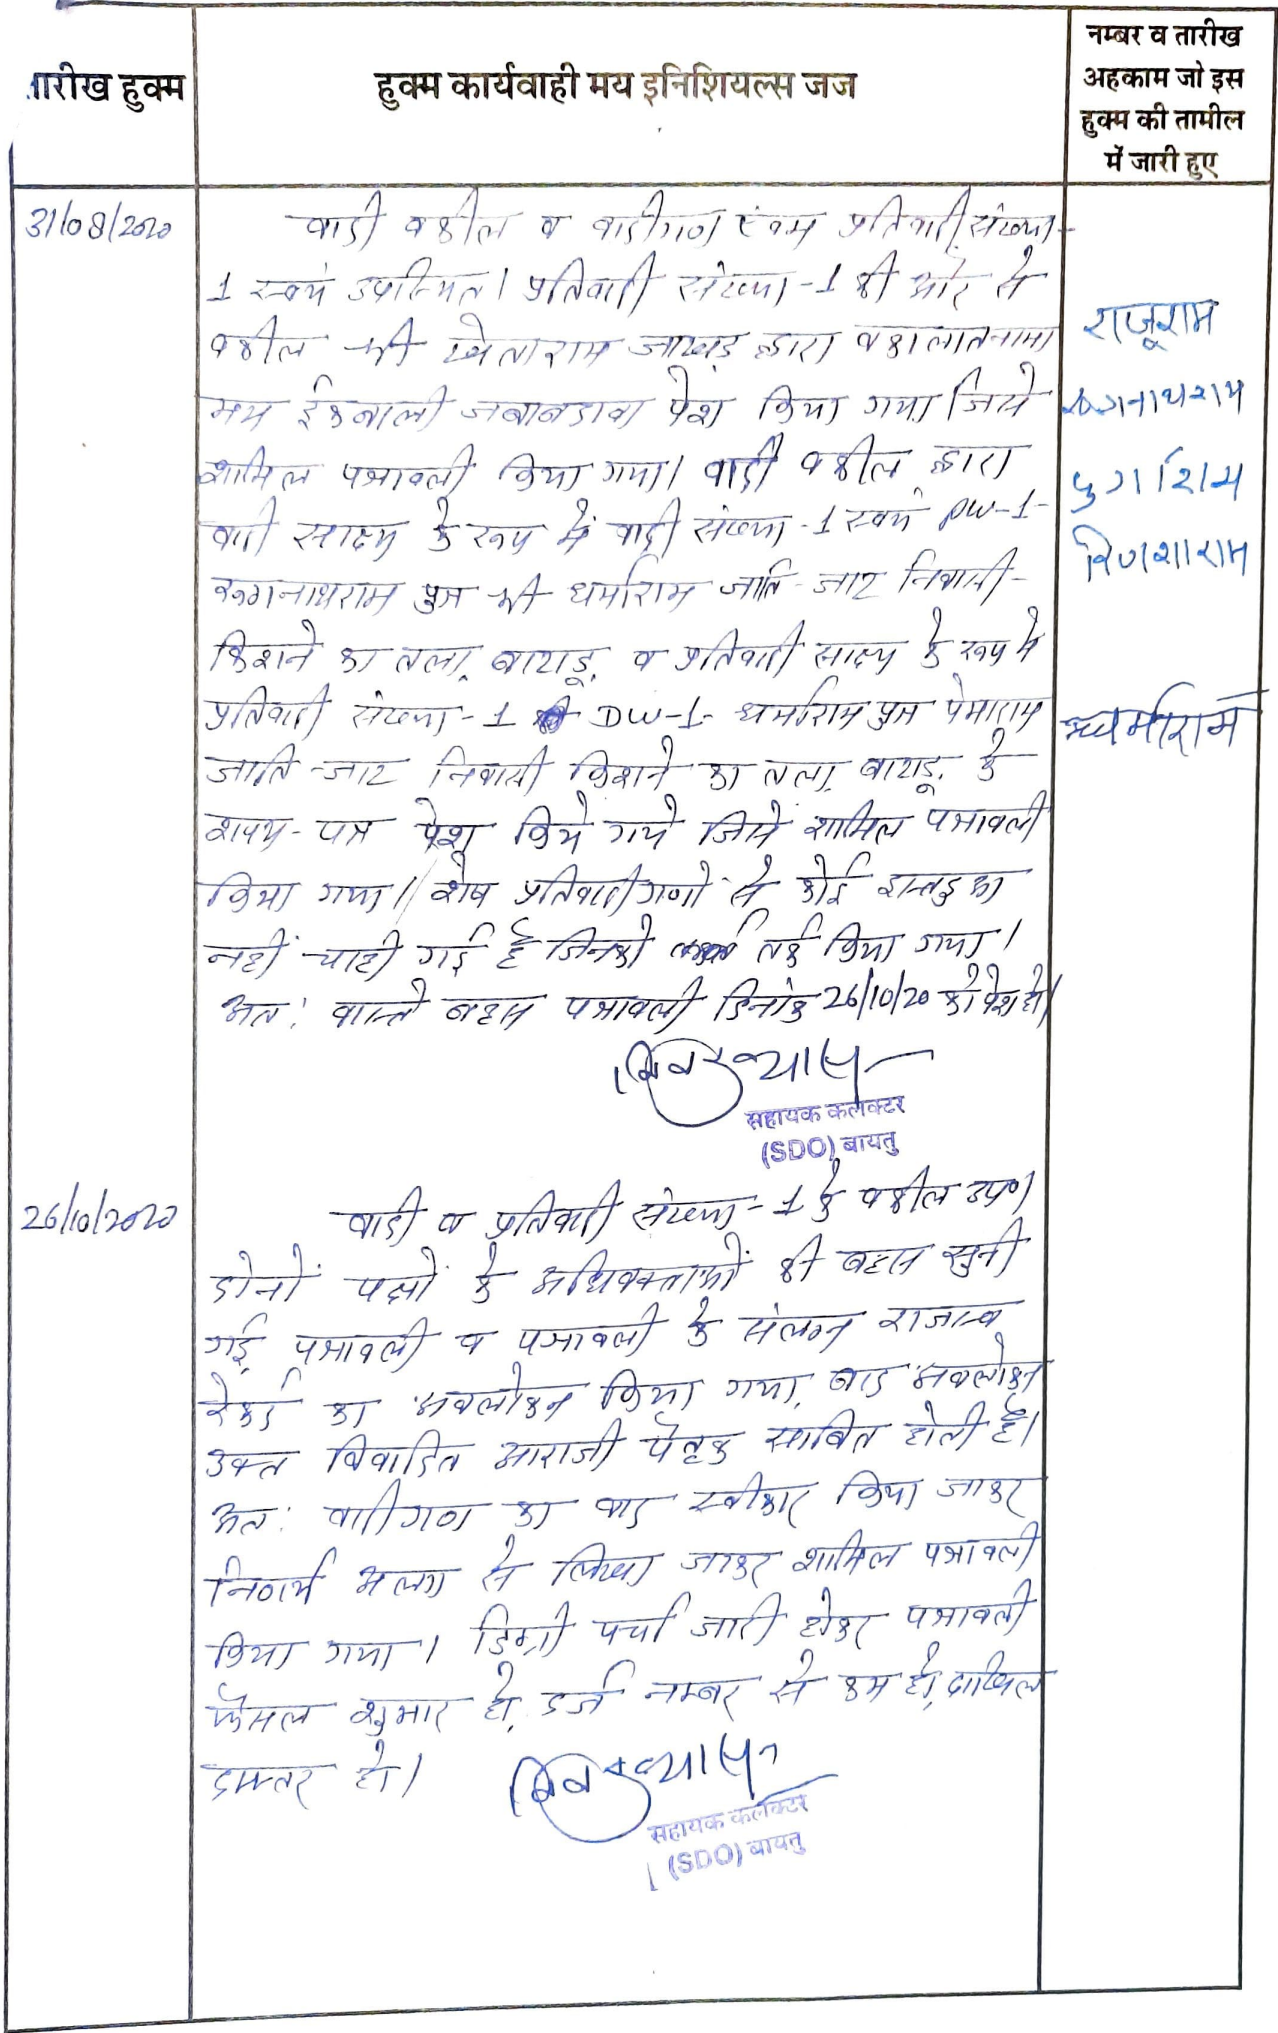 तारीख हुक्म
हुक्म कार्यवाही मय इनिशियल्स जज
नम्बर व तारीख
अहकाम जो इस
हुक्म की तामील
में जारी हुए
31/08/2020
वादी वकील व वादीगण एंवम प्रतिवादी संख्या-
1 स्वयं उपस्थित। प्रतिवादी संख्या-1 की ओर से
वकील श्री खेताराम जाखड़ द्वारा वकालातनामा
मय ईकबाली जबाबदावा पेश किया गया जिसे
शामिल पत्रावली किया गया। वादी वकील द्वारा
वादी साक्ष्य के रूप में वादी संख्या-1 स्वयं PW-1-
रूगनाथराम पुत्र श्री धर्माराम जाति-जाट निवासी-
किशने का तला, बाटाडू, व प्रतिवादी साक्ष्य के रूप मे
प्रतिवादी संख्या-1 DW-1- धर्माराम पुत्र पेमाराम
जाति-जाट निवासी किशने का तला, बाटाडू के
शपथ-पत्र पेश किये गये जिसे शामिल पत्रावली
किया गया।/ शेष प्रतिवादीगणो से कोई इमदाद का
नहीं चाही गई है जिनको तर्क किया गया।
अतः वास्ते बहस पत्रावली दिनांक 26/10/20 को पेश हो।
सहायक कलक्टर
(SDO) बायतु
राजूराम
रूगनाथराम
पुर्गाराम
धर्माराम
26/10/2020
वादी व प्रतिवादी संख्या-1 के वकील उप०।
दोनों पक्षों के अधिवक्ताओं की बहस सुनी
गई, पत्रावली व पत्रावली के संलग्न राजस्व
रेकर्ड का अवलोकन किया गया, बाद अवलोकन
उक्त विवादित आराजी पैतृक साबित होती है।
अतः वादीगण का वाद स्वीकार किया जाकर
निर्णय अलग से लिखा जाकर शामिल पत्रावली
किया गया। डिग्री पर्चा जारी होकर पत्रावली
फैसल शुमार हो, दर्ज नम्बर से कम हो, दाखिल
दफ्तर हो।
सहायक कलक्टर
(SDO) बायतु